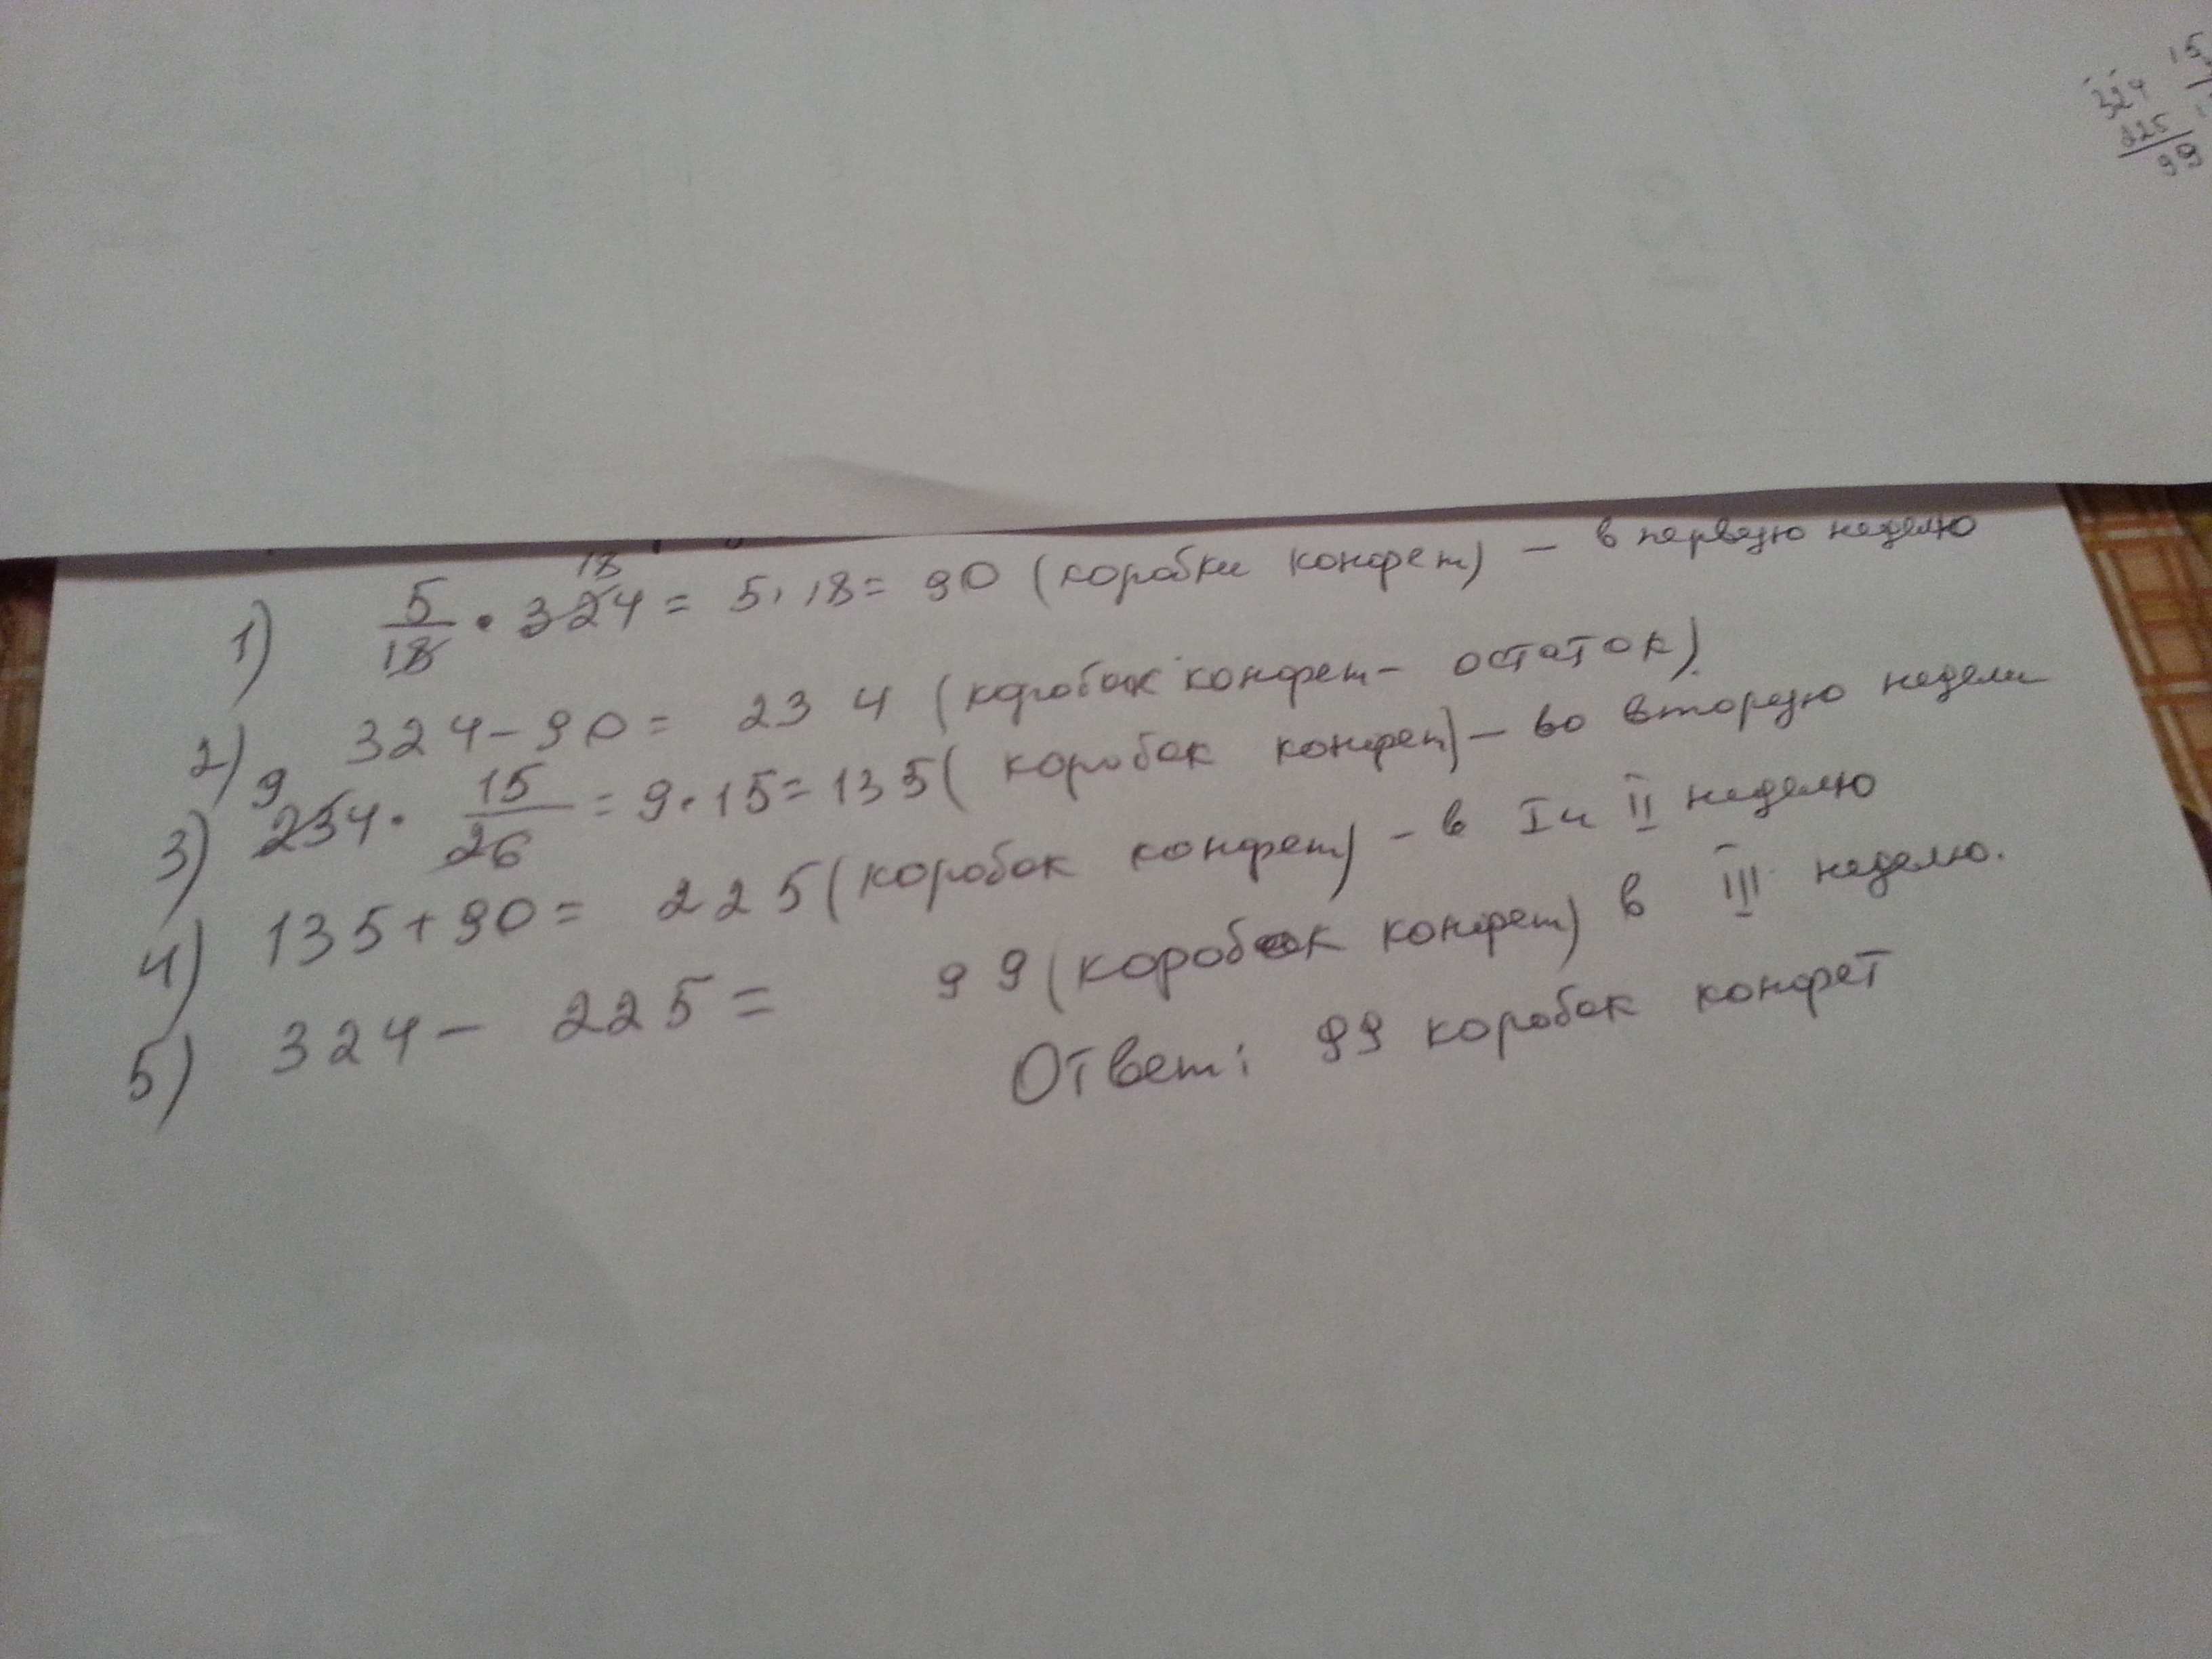 324 15
225
99
18
1) 5/18 · 324 = 5 · 18 = 90 (коробки конфет) – в первую неделю
2) 324 – 90 = 234 (коробок конфет – остаток)
9
3) 234 · 15/26 = 9 · 15 = 135 (коробок конфет) – во вторую недели
4) 135 + 90 = 225 (коробок конфет) – в I и II неделю
5) 324 – 225 = 99 (коробок конфет) в III неделю.
Ответ: 99 коробок конфет